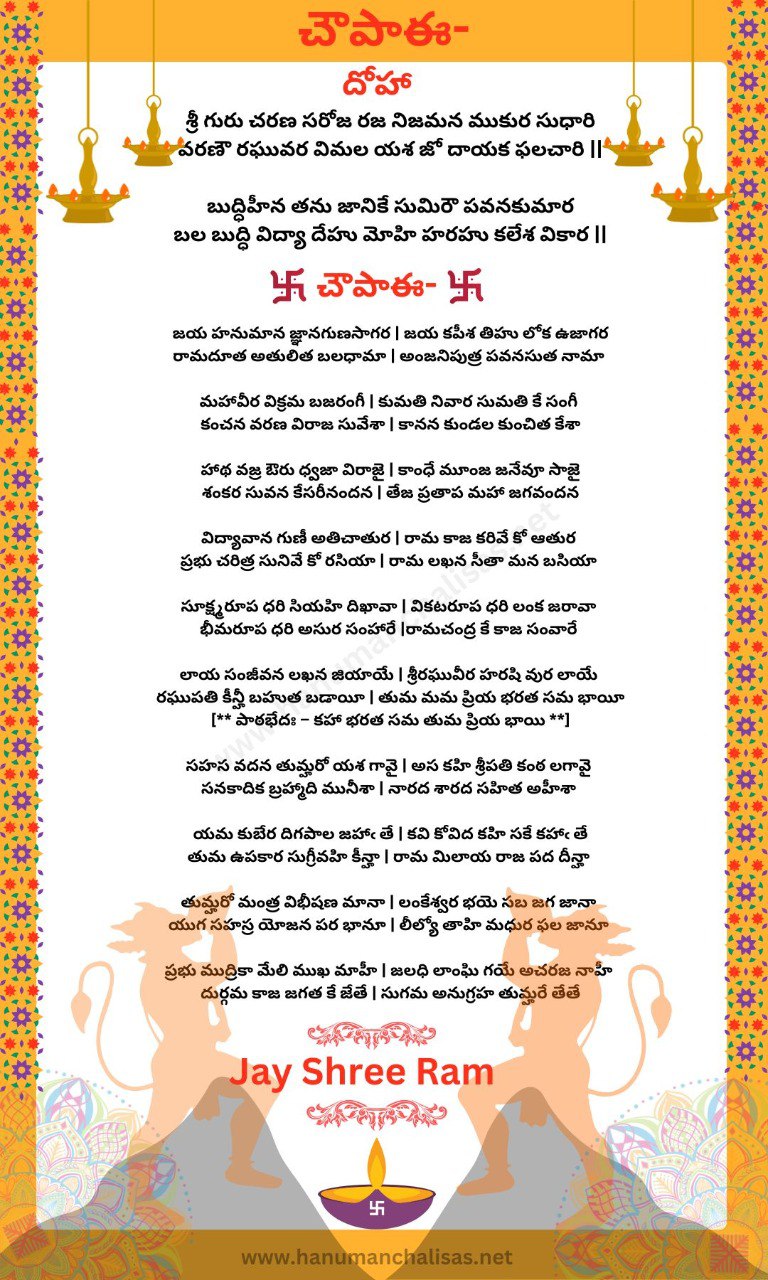 చౌపాఈ-
దోహా
శ్రీ గురు చరణ సరోజ రజ నిజమన ముకుర సుధారి
వరణౌ రఘువర విమల యశ జో దాయక ఫలచారి ||
బుద్ధిహీన తను జానికే సుమిరౌ పవనకుమార
బల బుద్ధి విద్యా దేహు మోహి హరహు కలేశ వికార ||
卐 చౌపాఈ- 卐
జయ హనుమాన జ్ఞానగుణసాగర | జయ కపీశ తిహు లోక ఉజాగర
రామదూత అతులిత బలధామా | అంజనిపుత్ర పవనసుత నామా
మహావీర విక్రమ బజరంగీ | కుమతి నివార సుమతి కే సంగీ
కంచన వరణ విరాజ సువేశా | కానన కుండల కుంచిత కేశా
హాథ వజ్ర ఔరు ధ్వజా విరాజై | కాంధే మూంజ జనేవూ సాజై
శంకర సువన కేసరీనందన | తేజ ప్రతాప మహా జగవందన
విద్యావాన గుణీ అతిచాతుర | రామ కాజ కరివే కో ఆతుర
ప్రభు చరిత్ర సునివే కో రసియా | రామ లఖన సీతా మన బసియా
సూక్ష్మరూప ధరి సియహి దిఖావా | వికటరూప ధరి లంక జరావా
భీమరూప ధరి అసుర సంహారే |రామచంద్ర కే కాజ సంవారే
లాయ సంజీవన లఖన జియాయే | శ్రీరఘువీర హరషి వుర లాయే
రఘుపతి కీన్హీ బహుత బడాయీ | తుమ మమ ప్రియ భరత సమ భాయీ
[** పాఠభేదః – కహా భరత సమ తుమ ప్రియ భాయి **]
సహస వదన తుమ్హరో యశ గావై | అస కహి శ్రీపతి కంఠ లగావై
సనకాదిక బ్రహ్మాది మునీశా | నారద శారద సహిత అహీశా
యమ కుబేర దిగపాల జహాఁ తే | కవి కోవిద కహి సకే కహాఁ తే
తుమ ఉపకార సుగ్రీవహి కీన్హా | రామ మిలాయ రాజ పద దీన్హా
తుమ్హరో మంత్ర విభీషణ మానా | లంకేశ్వర భయె సబ జగ జానా
యుగ సహస్ర యోజన పర భానూ | లీల్యో తాహి మధుర ఫల జానూ
ప్రభు ముద్రికా మేలి ముఖ మాహీ | జలధి లాంఘి గయే అచరజ నాహీ
దుర్గమ కాజ జగత కే జేతే | సుగమ అనుగ్రహ తుమ్హరే తేతే
Jay Shree Ram
卐
www.hanumanchalisas.net
www.hanumanchalisas.net